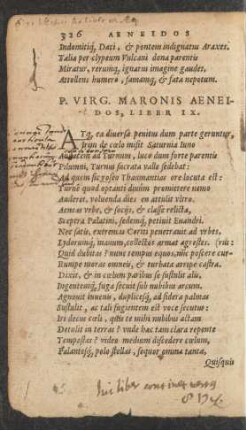 326 AENEIDOS
Indomitiq́, Daci, & pontem indignatus Araxes.
Talia per clypeum Vulcani dona parentis
Miratur, rerumq́, ignarus imagine gaudet.
Attollens humero, famamq́, & fata nepotum.
P. VIRG. MARONIS AENEI-
DOS, LIBER IX.
ATq, ea diuersa penitus dum parte geruntur,
Irim de cœlo misit Saturnia Iuno
Audacem ad Turnum, luco dum forte parentis
Pilumni, Turnus sacrata valle sedebat:
Ad quem sic roseo Thaumantias ore locuta est:
Turne quod optanti diuûm promittere nemo
Auderet, voluenda dies en attulit vltro.
Aeneas vrbe, & socijs, & classe relicta,
Sceptra Palatini, sedemq́, petiuit Euandri.
Nec satis, extremas Coriti penetrauit ad vrbes.
Lydorumq́, manum, collectos armat agrestes. (rus:
Quid dubitas? nunc tempus equos, nũc poscere cur-
Rumpe moras omneis, & turbata arripe castra.
Dixit, & in cœlum paribus se sustulit alis,
Ingentemq́, fuga secuit sub nubibus arcum.
Agnouit iuuenis, duplicesq́, ad sidera palmas
Sustulit, ac tali fugientem est voce secutus:
Iri decus cœli, quis te mihi nubibus actam
Detulit in terras? vnde hæc tam clara repente
Tempestas? video medium discedere cœlum,
Palantesq́, polo stellas, sequor omina tanta,
Quisquis
hic liber continet versus